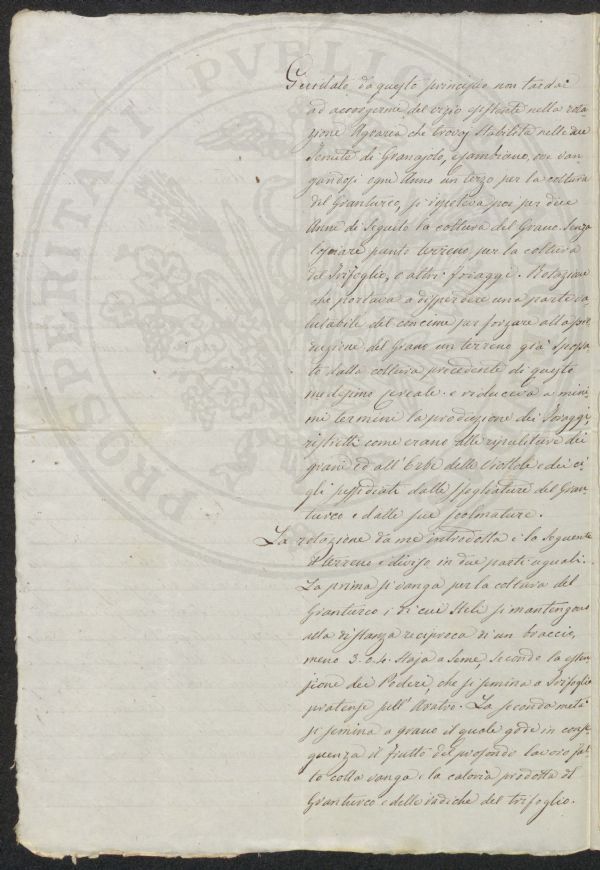 PROSPERITATI PVBLICAE
Guidato da questo principio non tardai
ad accorgermi del vizio esistente nella rota
zione Agraria che trovai stabilita nelle due
Tenute di Granajolo, e Cambiano, ove van
gandosi ogni Anno un terzo per la coltura
del Granturco, si ripeteva poi per due
Anni di Seguito la coltura del Grano. Senza
lasciare punto terreno per la coltura
del Trifoglio, e altri foraggi. Rotazione
che portava a disperdere una parte va
lutabile del concime per forzare alla pro
duzione del Grano un terreno già spossa
to dalla coltura precedente di questo
medesimo cereale. e riduceva a mini
mi termini la produzione dei Foraggi,
ristretti come erano alle ripuliture dei
grani ed all'Erbe delle Prode e dei ci
gli sussidiate dalle sfogliature del Gran
turco e dalle sue scolmature.
La rotazione da me introdotta è la seguente
Il terreno è diviso in due parti eguali.
La prima si vanga per la coltura del
Granturco i di cui Steli si mantengono
alla distanza reciproca di un braccio,
meno 3. o 4. Staja a Seme, Secondo la esten
sione dei Poderi, che si semina a Trifoglio
pratense sull'Aratro. La seconda metà
si semina a grano il quale gode in conse
guenza il frutto del profondo lavoro fat
to colla vanga e la caloria prodotta dal
Granturco e delle radiche del trifoglio.